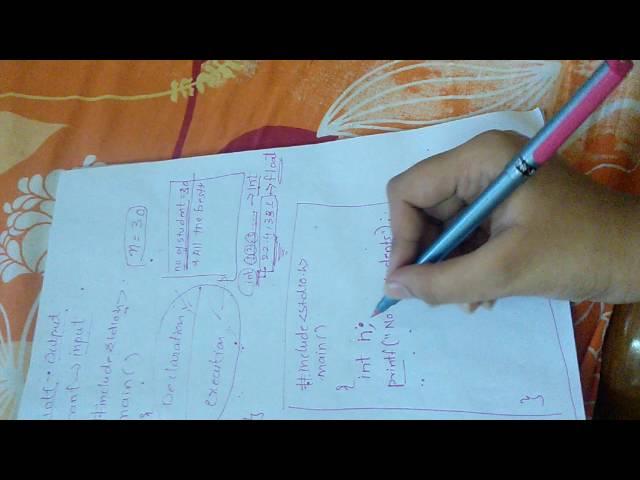 Output
input
#include<stdio.h>
main()
{
Declaration
execution
}
n=30
no of student=30
All the best
int → int
22.4,38.1 → float
#include<stdio.h>
main()
{
int n;
printf("No dents");
}